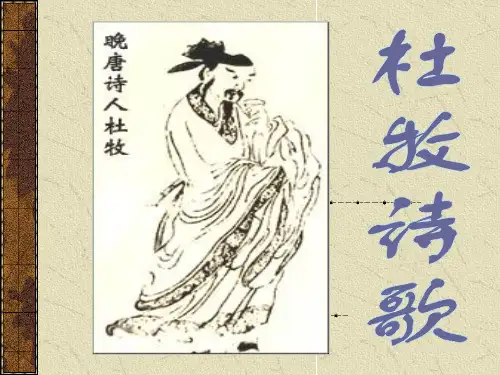 晚唐诗人杜牧
杜牧诗歌